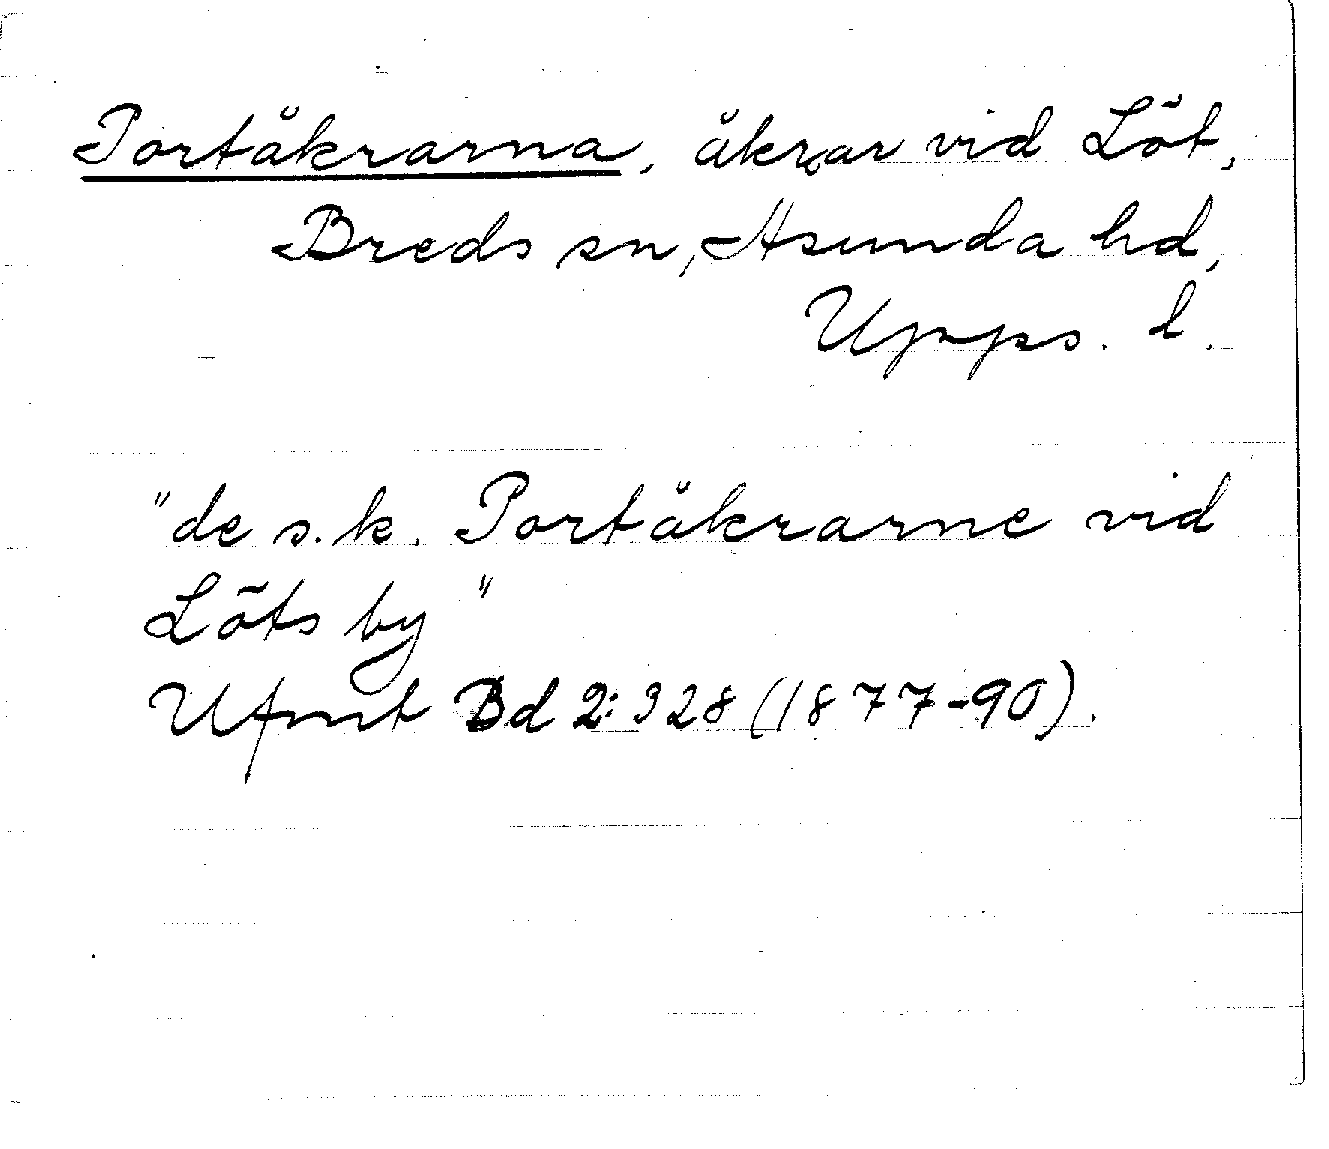 Portåkrarna, åkrar vid Löt,
Breds sn, Åsunda hd,
Upps. l.
"de s.k. Portåkrarne vid
Löts by"
Ufmt Bd 2: 328 (1877-90).